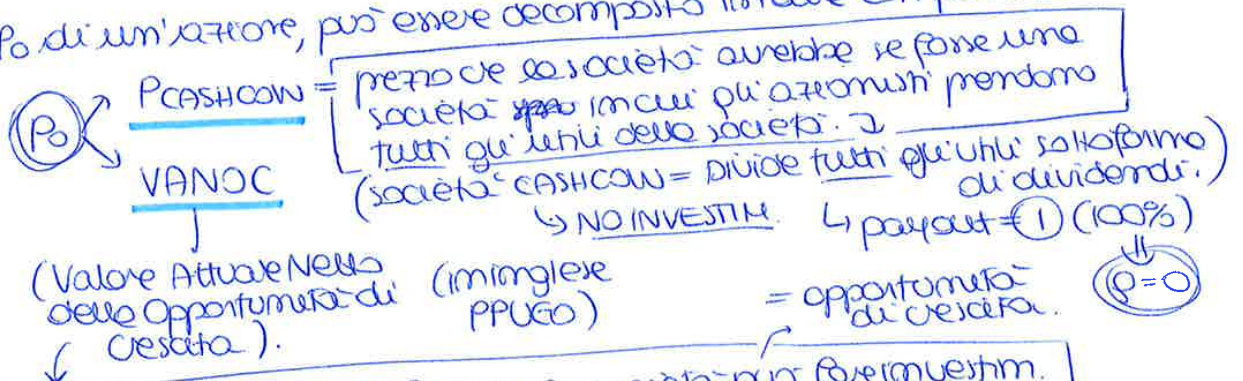 Po di un'azione, può essere decomposto
Po
PCASHCOW = prezzo che la società avrebbe se fosse una
società in cui gli azionisti prendono
tutti gli utili della società.
(società CASHCOW = DIVIDE tutti gli utili sottoforma
di dividendi.)
↳ NO INVESTIM. ↳ payout = 1 (100%)
VANOC
(Valore Attuale Netto (in inglese = opportunità
delle Opportunità di PPVGO) di crescita.
crescita).
g=0
può fare investim.